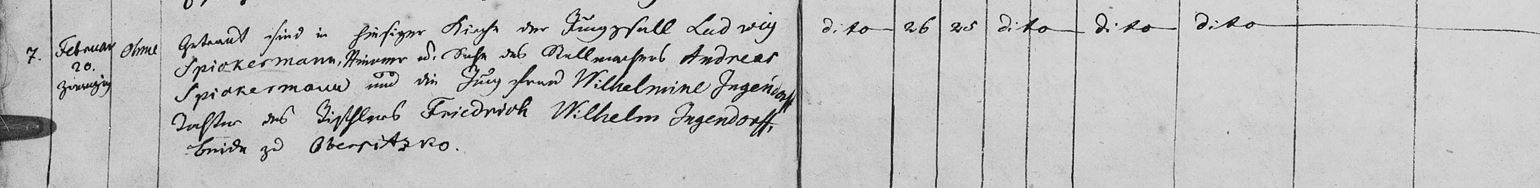 7. Februar 20. zwanzig Ohne Getraut sind in hiesiger Kirche der Junggesell Ludwig dito 26 25 dito dito dito
Spickermann, u. Sohn des Stellmachers Andreas
Spickermann und die Jungfrau Wilhelmine Ingendorff
Tochter des Tischlers Friedrich Wilhelm Ingendorff,
beide zu Obersitzko.